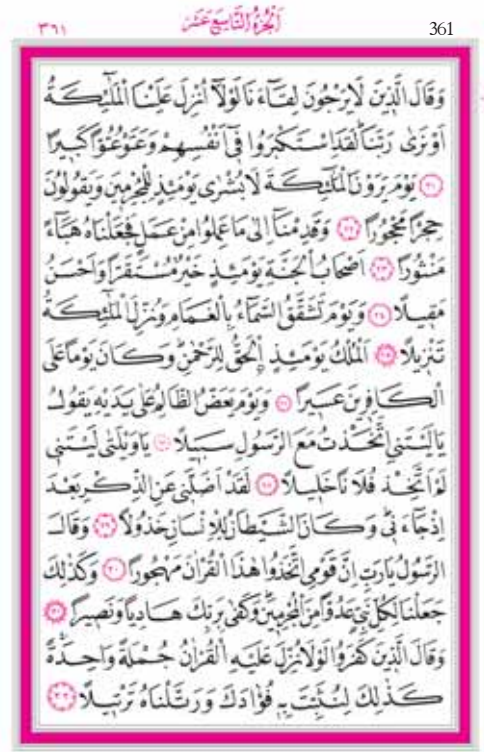 ٣٦١ اَلْجُزْءُ التَّاسِعَ عَشَرَ 361
وَقَالَ الَّذِينَ لَا يَرْجُونَ لِقَاءَنَا لَوْلَا اُنْزِلَ عَلَيْنَا الْمَلٰئِكَةُ
اَوْ نَرٰى رَبَّنَا لَقَدِ اسْتَكْبَرُوا فِى اَنْفُسِهِمْ وَعَتَوْ عُتُوًّا كَبِيرًا
﴿٢١﴾ يَوْمَ يَرَوْنَ الْمَلٰئِكَةَ لَا بُشْرٰى يَوْمَئِذٍ لِلْمُجْرِمِينَ وَيَقُولُونَ
حِجْرًا مَحْجُورًا ﴿٢٢﴾ وَقَدِمْنَا اِلٰى مَا عَمِلُوا مِنْ عَمَلٍ فَجَعَلْنَاهُ هَبَاءً
مَنْثُورًا ﴿٢٣﴾ اَصْحَابُ الْجَنَّةِ يَوْمَئِذٍ خَيْرٌ مُسْتَقَرًّا وَاَحْسَنُ
مَقِيلًا ﴿٢٤﴾ وَيَوْمَ تَشَقَّقُ السَّمَاءُ بِالْغَمَامِ وَنُزِّلَ الْمَلٰئِكَةُ
تَنْزِيلًا ﴿٢٥﴾ اَلْمُلْكُ يَوْمَئِذٍ الْحَقُّ لِلرَّحْمٰنِ وَكَانَ يَوْمًا عَلَى
الْكَافِرِينَ عَسِيرًا ﴿٢٦﴾ وَيَوْمَ يَعَضُّ الظَّالِمُ عَلٰى يَدَيْهِ يَقُولُ
يَا لَيْتَنِى اتَّخَذْتُ مَعَ الرَّسُولِ سَبِيلًا ﴿٢٧﴾ يَا وَيْلَتٰى لَيْتَنِى
لَمْ اَتَّخِذْ فُلَانًا خَلِيلًا ﴿٢٨﴾ لَقَدْ اَضَلَّنِى عَنِ الذِّكْرِ بَعْدَ
اِذْ جَاءَنِى وَكَانَ الشَّيْطَانُ لِلْاِنْسَانِ خَذُولًا ﴿٢٩﴾ وَقَالَ
الرَّسُولُ يَا رَبِّ اِنَّ قَوْمِى اتَّخَذُوا هٰذَا الْقُرْاٰنَ مَهْجُورًا ﴿٣٠﴾ وَكَذٰلِكَ
جَعَلْنَا لِكُلِّ نَبِىٍّ عَدُوًّا مِنَ الْمُجْرِمِينَ وَكَفٰى بِرَبِّكَ هَادِيًا وَنَصِيرًا ﴿٣١﴾
وَقَالَ الَّذِينَ كَفَرُوا لَوْلَا نُزِّلَ عَلَيْهِ الْقُرْاٰنُ جُمْلَةً وَاحِدَةً
كَذٰلِكَ لِنُثَبِّتَ بِهِ فُؤَادَكَ وَرَتَّلْنَاهُ تَرْتِيلًا ﴿٣٢﴾